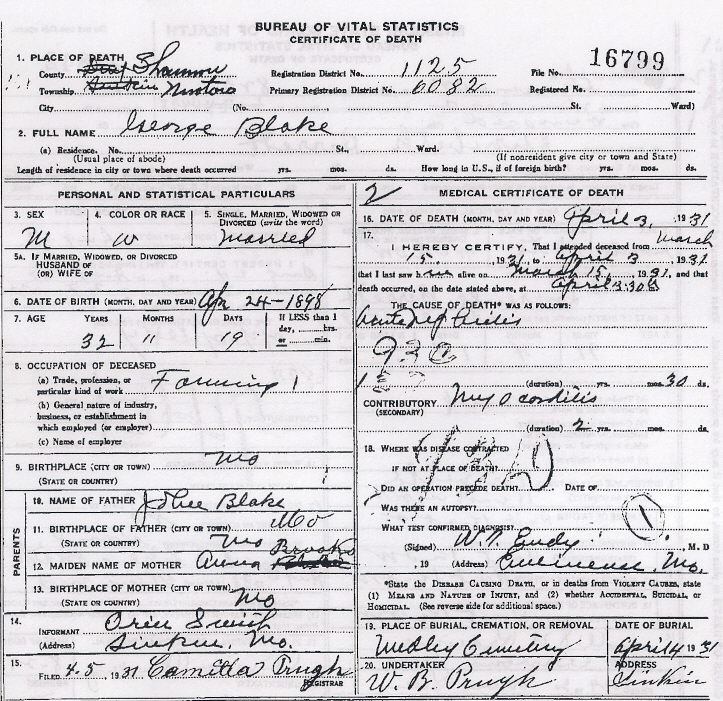 BUREAU OF VITAL STATISTICS
CERTIFICATE OF DEATH
1. PLACE OF DEATH
County Shannon Registration District No. 1125 File No. 16799
Township Primary Registration District No. 6082 Registered No.
City (No. St. Ward)
2. FULL NAME George Blake
(a) Residence. No. St., Ward.
(Usual place of abode) (If nonresident give city or town and State)
Length of residence in city or town where death occurred yrs. mos. ds. How long in U.S., if of foreign birth? yrs. mos. ds.
PERSONAL AND STATISTICAL PARTICULARS
3. SEX 4. COLOR OR RACE 5. SINGLE, MARRIED, WIDOWED OR
DIVORCED (write the word)
M W Married
5A. IF MARRIED, WIDOWED, OR DIVORCED
HUSBAND OF
(OR) WIFE OF
6. DATE OF BIRTH (MONTH, DAY AND YEAR) Apr 24-1898
7. AGE YEARS MONTHS DAYS If LESS than 1
day, hrs.
or min.
32 11 19
8. OCCUPATION OF DECEASED
(a) Trade, profession, or
particular kind of work Farming
(b) General nature of industry,
business, or establishment in
which employed (or employer)
(c) Name of employer
9. BIRTHPLACE (CITY OR TOWN) Mo
(STATE OR COUNTRY)
PARENTS
10. NAME OF FATHER Blake
11. BIRTHPLACE OF FATHER (CITY OR TOWN) Mo
(STATE OR COUNTRY) Mo
12. MAIDEN NAME OF MOTHER Anna Brooks
13. BIRTHPLACE OF MOTHER (CITY OR TOWN)
(STATE OR COUNTRY) Mo
14.
INFORMANT Smith
(Address) Sinkin, Mo.
15.
FILED 4-5, 1931 Prugh
REGISTRAR
2 MEDICAL CERTIFICATE OF DEATH
16. DATE OF DEATH (MONTH, DAY AND YEAR) April 3, 1931
17.
I HEREBY CERTIFY, That I attended deceased from March
15, 1931, to April 3, 1931
that I last saw him alive on March 15, 1931, and that
death occurred, on the date stated above, at April 3:30
THE CAUSE OF DEATH* WAS AS FOLLOWS:
93C
(duration) yrs. mos. 30 ds.
CONTRIBUTORY Myocarditis
(SECONDARY)
(duration) 2 yrs. mos. ds.
18. WHERE WAS DISEASE CONTRACTED
IF NOT AT PLACE OF DEATH?
DID AN OPERATION PRECEDE DEATH? DATE OF
WAS THERE AN AUTOPSY?
WHAT TEST CONFIRMED DIAGNOSIS? 1
(Signed) W. T. Eudy, M. D
, 19 (Address) Eminence, Mo.
*State the DISEASE CAUSING DEATH, or in deaths from VIOLENT CAUSES, state
(1) MEANS AND NATURE OF INJURY, and (2) whether ACCIDENTAL, SUICIDAL, or
HOMICIDAL. (See reverse side for additional space.)
19. PLACE OF BURIAL, CREMATION, OR REMOVAL DATE OF BURIAL
Medley Cemetery April 4 1931
20. UNDERTAKER ADDRESS
W. B. Prugh Sinkin